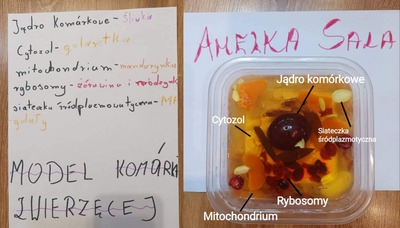 Jądro Komórkowe - śliwka
Cytozol - galaretka
mitochondrium - mandarynka
rybosomy - żórawina i rodzynki
siateczka śródplazmowatyczna - MI-
gdały
MODEL KOMÓRKI
ZWIERZĘCEJ
AMEJKA SALA
Jądro komórkowe
Cytozol
Siateczka
śródplazmotyczna
Rybosomy
Mitochondrium